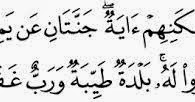 كَنِهِمْ ءَايَةٌ ۖ جَنَّتَانِ عَن يَم
وا۟ لَهُۥ ۚ بَلْدَةٌ طَيِّبَةٌ وَرَبٌّ غَف